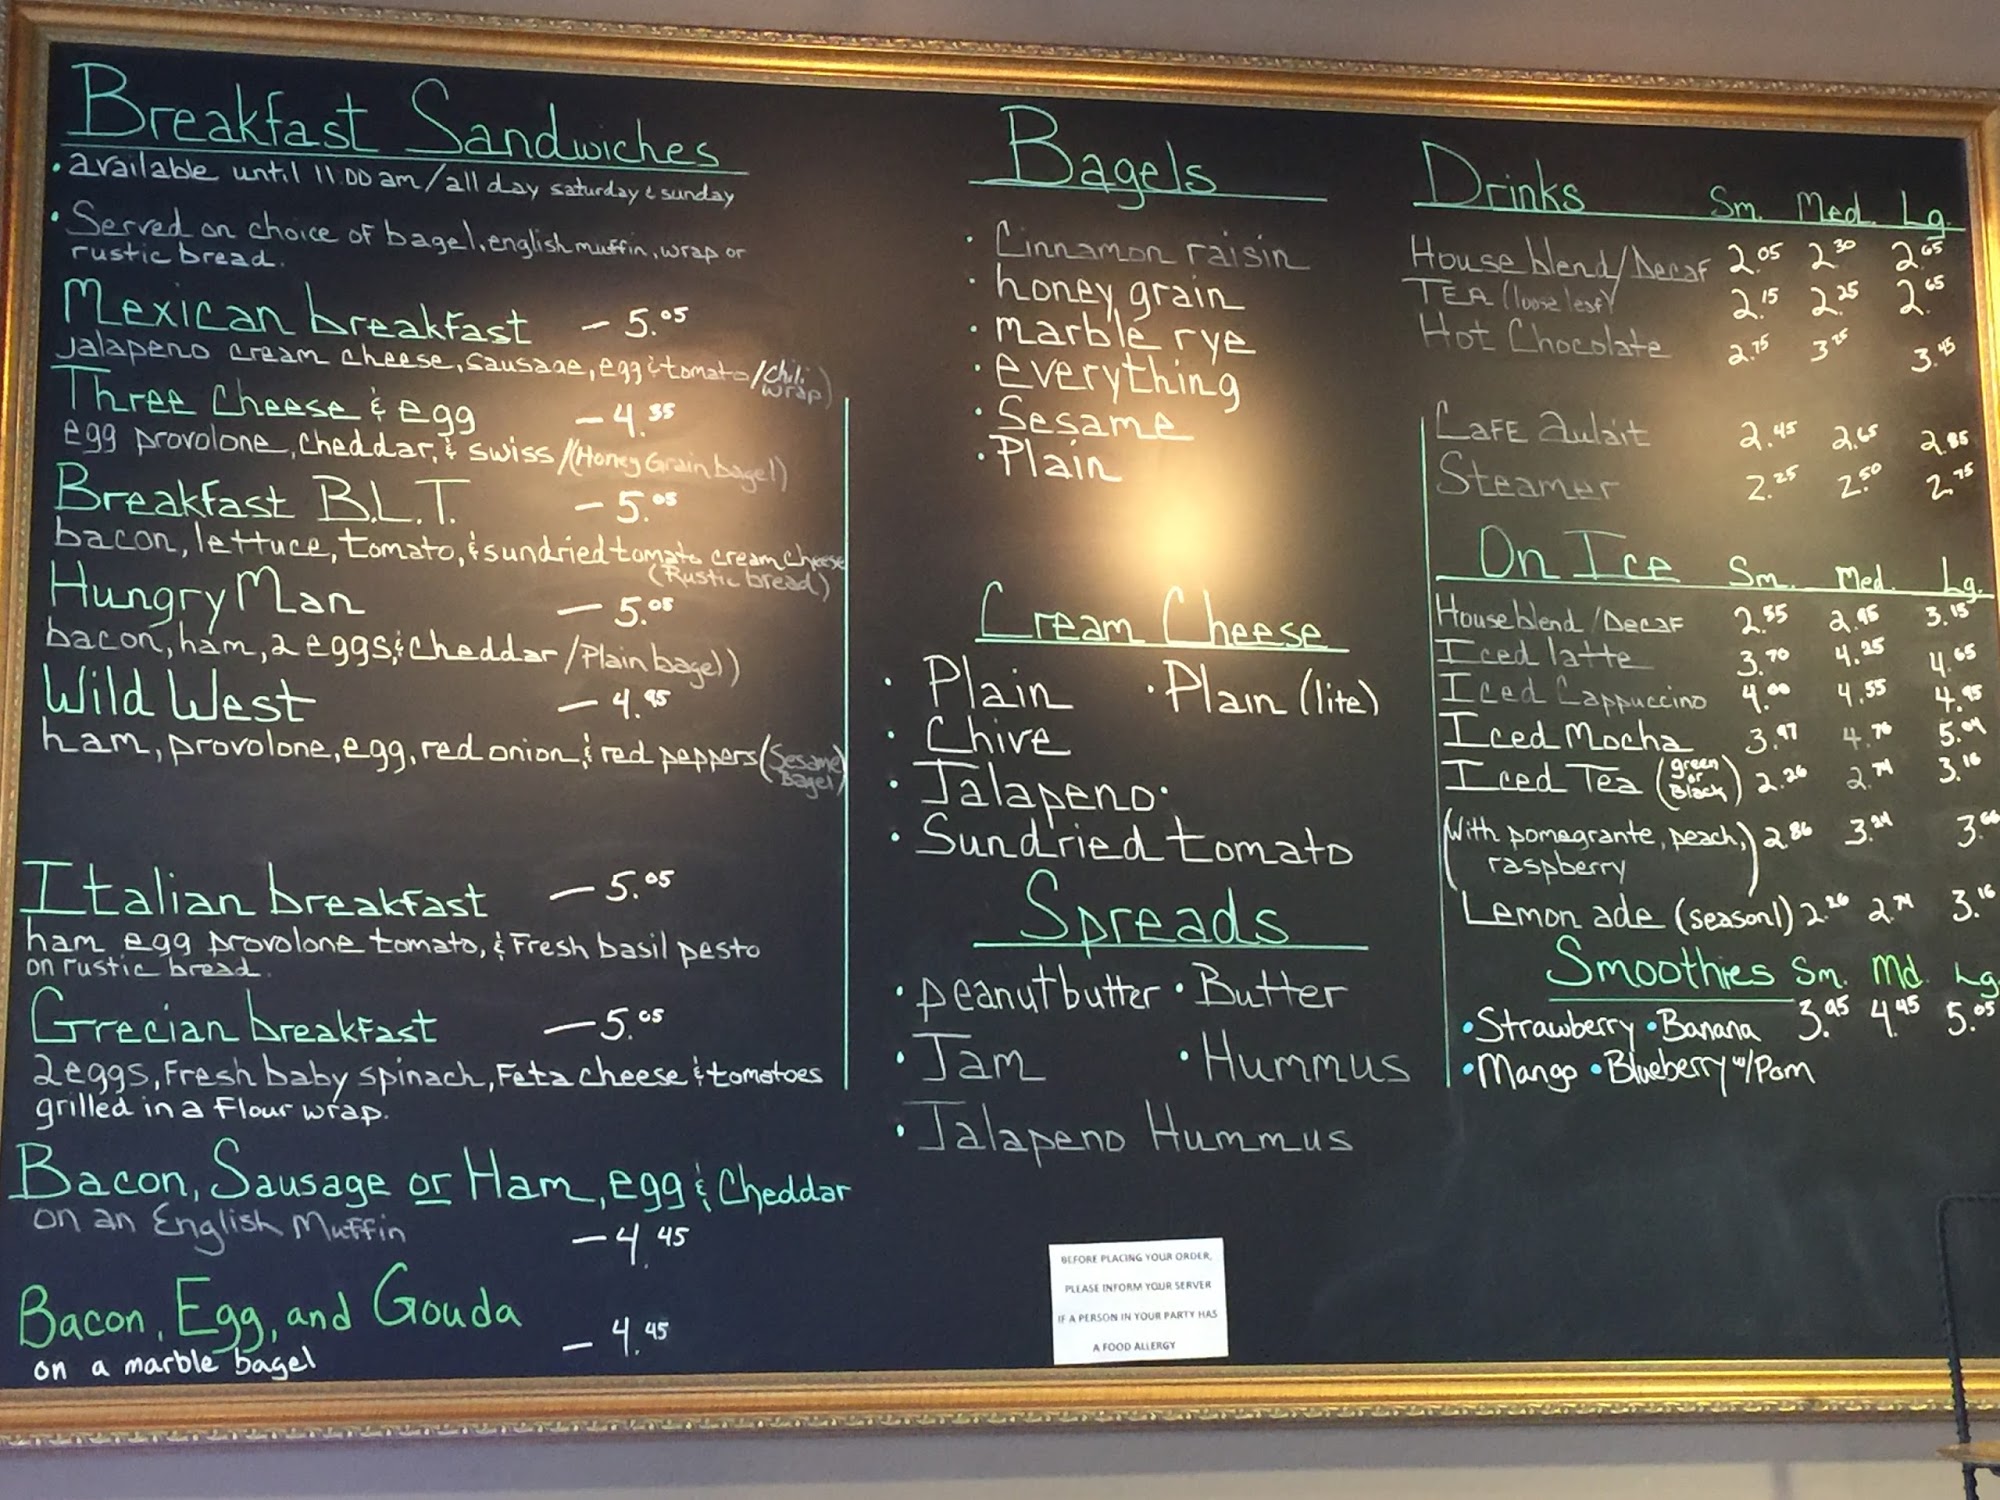 Breakfast Sandwiches
• available until 11.00 am/all day saturday & sunday
• Served on choice of bagel, english muffin, wrap or
rustic bread.
Mexican breakfast — 5.05
Jalapeno cream cheese, sausage, egg & tomato/chili
wrap)
Three Cheese & egg — 4.35
egg provolone, cheddar, & swiss/(Honey Grain bagel)
Breakfast B.L.T. — 5.05
bacon, lettuce, tomato, & sundried tomato cream cheese
(Rustic bread)
Hungry Man — 5.05
bacon, ham, 2 eggs & cheddar/Plain bagel))
Wild West — 4.95
ham, provolone, egg, red onion, & red peppers (Sesame
Bagel)
Italian breakfast — 5.05
ham egg provolone tomato, & Fresh basil pesto
on rustic bread.
Grecian breakfast — 5.05
2 eggs, Fresh baby spinach, Feta cheese & tomatoes
grilled in a Flour wrap.
Bacon, Sausage or Ham, egg & Cheddar
on an English Muffin — 4.45
Bacon, Egg, and Gouda
on a marble bagel — 4.45
Bagels
• Cinnamon raisin
• honey grain
• marble rye
• everything
• Sesame
• Plain
Cream Cheese
• Plain • Plain (lite)
• Chive
• Jalapeno
• Sundried tomato
Spreads
• peanut butter • Butter
• Jam • Hummus
• Jalapeno Hummus
BEFORE PLACING YOUR ORDER,
PLEASE INFORM YOUR SERVER
IF A PERSON IN YOUR PARTY HAS
A FOOD ALLERGY
Drinks Sm. Med. Lg.
House blend/Decaf 2.05 2.30 2.65
TEA (loose leaf) 2.15 2.25 2.65
Hot Chocolate 2.75 3.25 3.45
CaFE Aulait 2.45 2.65 2.85
Steamer 2.25 2.50 2.75
On Ice Sm. Med. Lg.
House blend/Decaf 2.55 2.95 3.15
Iced latte 3.70 4.25 4.65
Iced Cappuccino 4.00 4.55 4.95
Iced Mocha 3.97 4.70 5.04
Iced Tea (green or Black) 2.26 2.74 3.16
(with pomegrante, peach, 2.86 3.24 3.66
raspberry)
Lemon ade (seasonl) 2.26 2.74 3.16
Smoothies Sm. Md. Lg.
• Strawberry • Banana 3.95 4.45 5.05
• Mango • Blueberry w/Pom